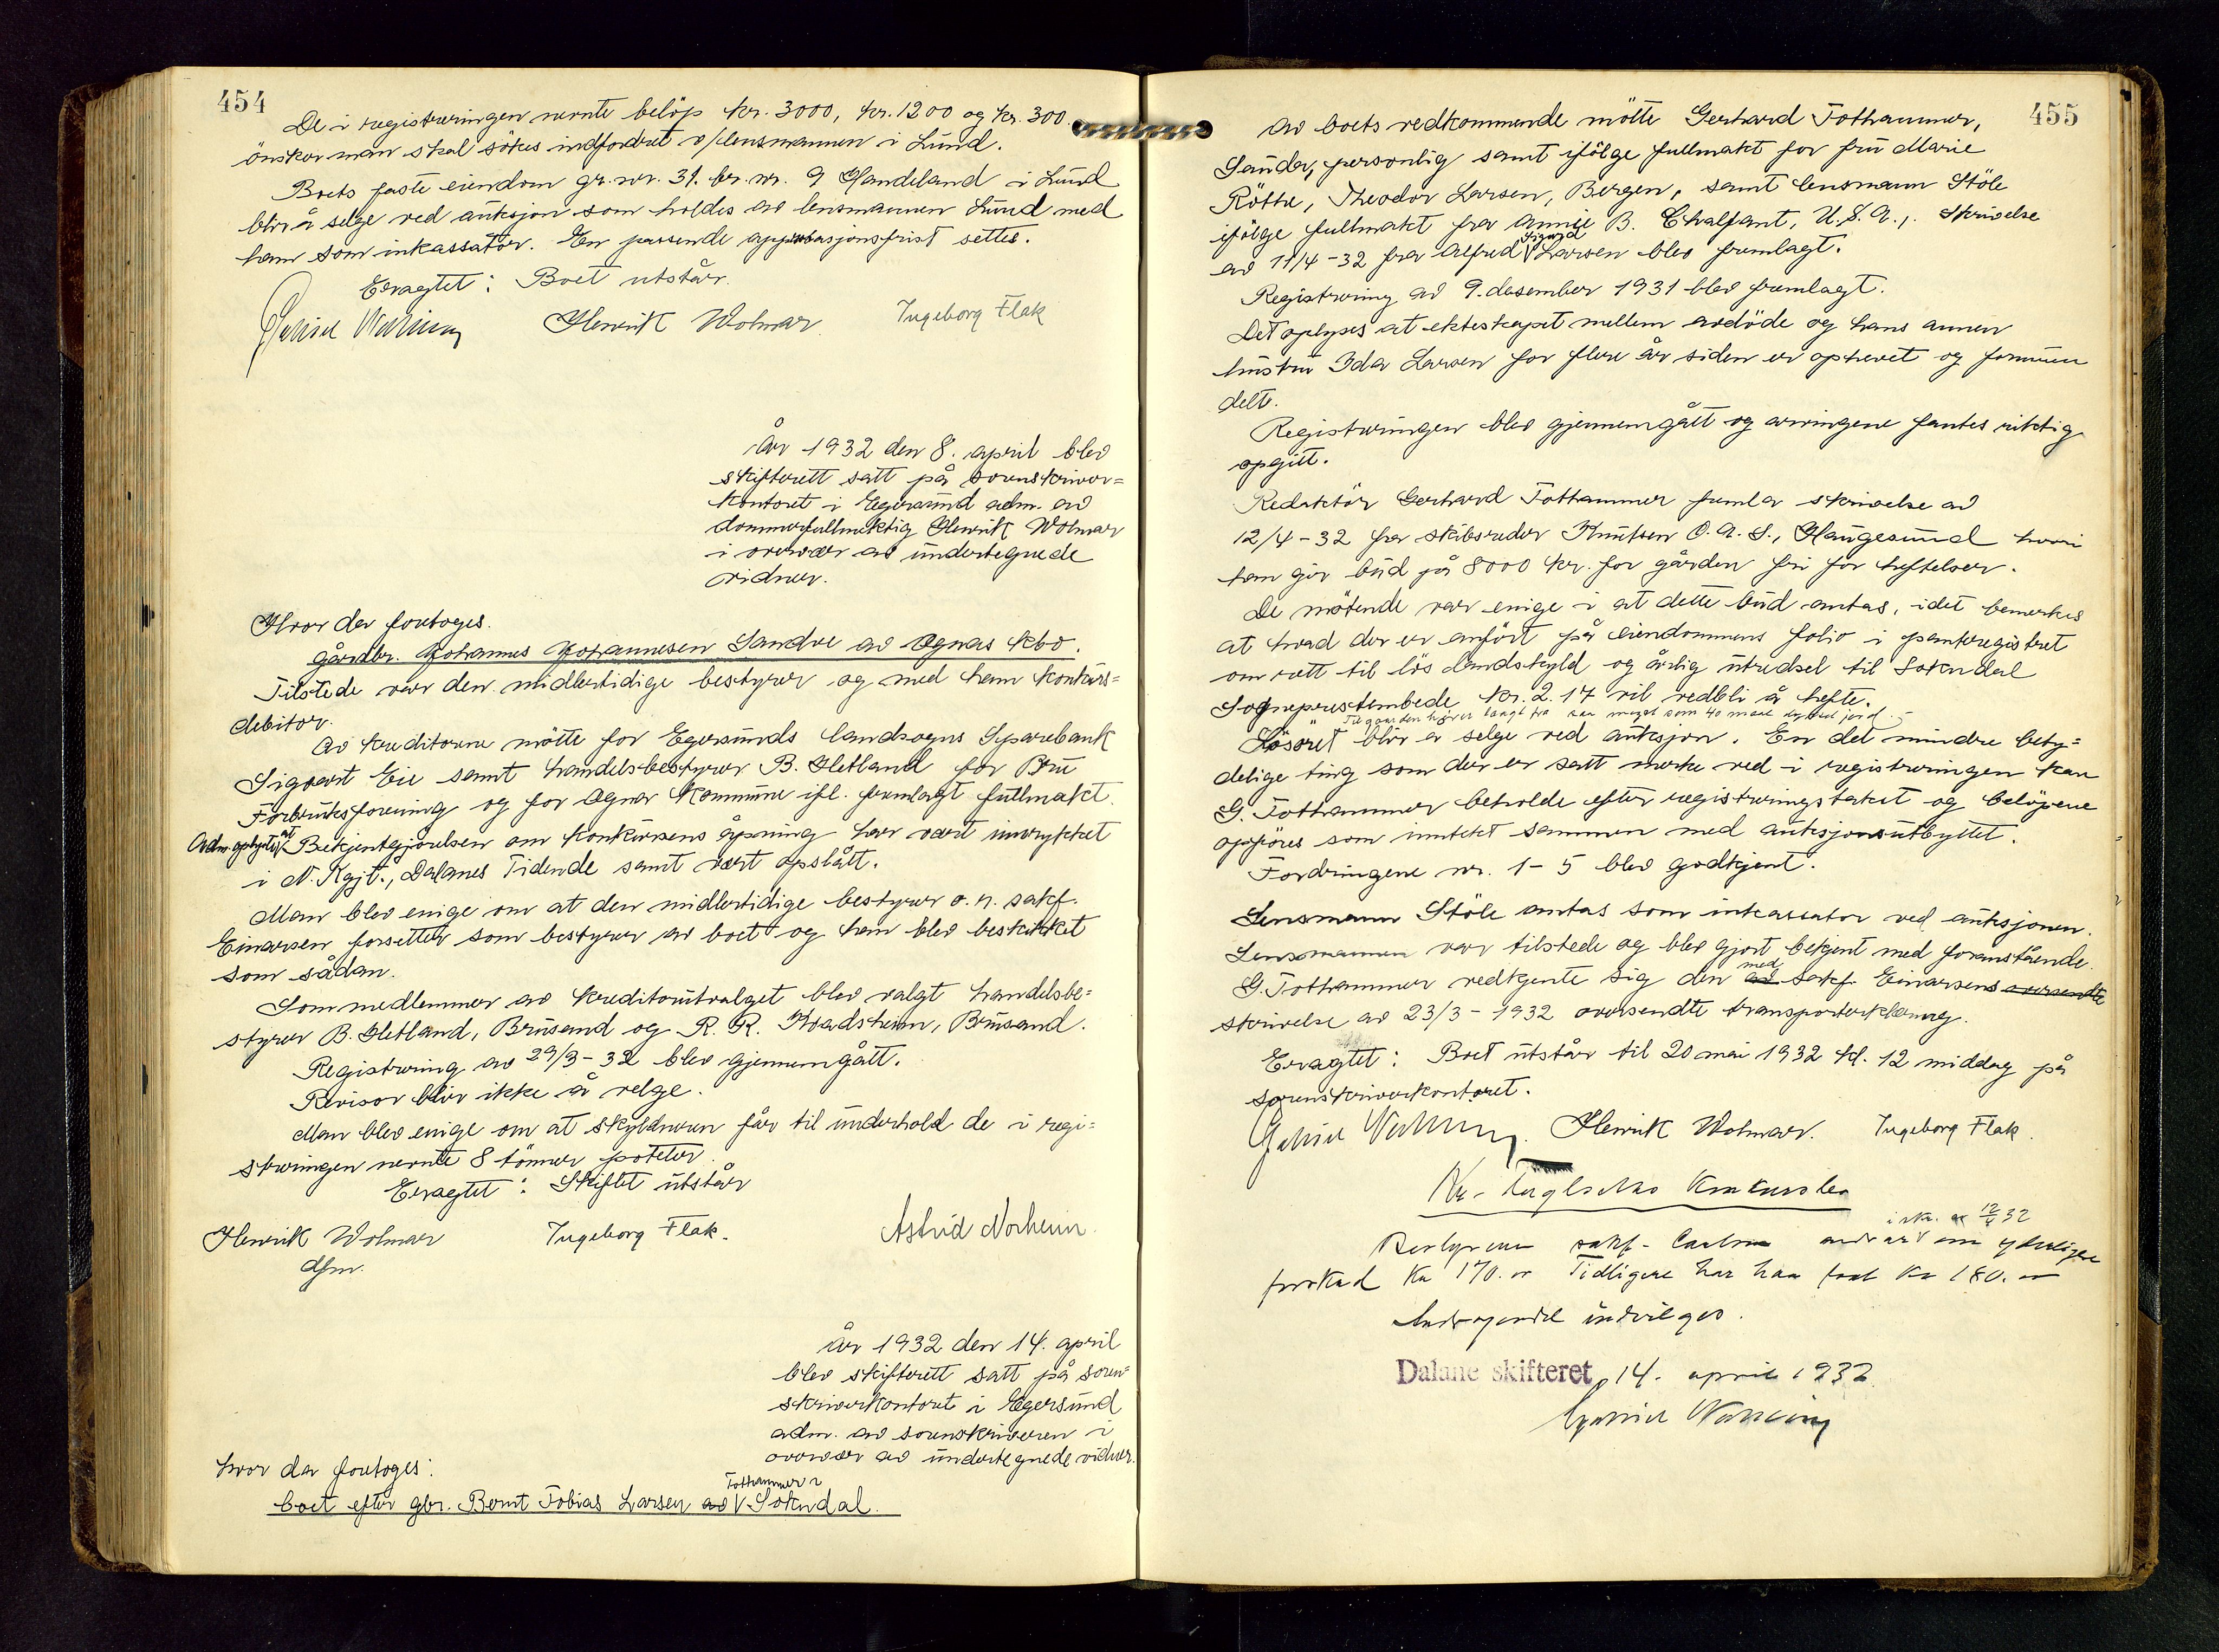 454
De i registreringen nevnte beløp kr. 3000, kr. 1200 og kr. 300
ønsker man skal søkes indfordret v/lensmannen i Lund.
Boets faste eiendom gr.nr. 31. br. nr. 9 Handeland i Lund
blir å selge ved auksjon som holdes av lensmannen Lund med
ham som inkassator. En passende approbasjonsfrist settes.
Eragtet: Boet utstår.
Henrik Wolmar Ingeborg Flak
År 1932 den 8. april blev
skifterett satt på sorenskriver=
kontoret i Egersund adm. av
dommerfullmektig Henrik Wolmar
i overvær av undertegnede
vidner.
Hvor da foretoges.
gårdbr. Johannes Johannesen Sandve av Ognas kbo.
Tilstede var den midlertidige bestyrer og med ham konkurs=
debitor.
Av kreditorene møtte for Egersunds landsogns Sparebank
Sigvart Eie samt handelsbestyrer B. Hetland for Bru
Forbruksforening og for Ogna Kommune ifl. fremlagt fullmakt.
Adm. oplyste at Bekjentgjørelsen om konkursens åpning har vært innrykket
i N. Kgjt., Dalanes Tidende samt vært opslått.
Man blev enige om at den midlertidige bestyrer o.r. sakf.
Einarsen forsetter som bestyrer av boet og han blev beskikket
som sådan.
Som medlemmer av kreditorutvalget blev valgt handelsbe=
styrer B. Hetland, Brusand og R. R. Kvadsheim, Brusand.
Registrering av 29/3-32 blev gjennemgått.
Revisor blir ikke å velge.
Man blev enige om at skyldneren får til underhold de i regi=
streringen nevnte 8 tønner poteter.
Eragtet: Skiftet utstår
Henrik Wolmar Ingeborg Flak. Astrid Norheim.
dfm.
År 1932 den 14. april
blev skifterett satt på soren=
skriverkontoret i Egersund
adm. av sorenskriveren i
overvær av undertegnede vidner.
hvor da foretoges:
Tothammer i
boet efter gbr. Bernt Tobias Larsen av Sokndal.
455
Av boets vedkommende møtte Gerhard Tothammer,
Sauda, personlig samt ifølge fullmakt for fru Marie
Røthe, Theodor Larsen, Bergen, samt lensmann Støle
ifølge fullmakt fra Annie B. Chalfant, U.S.A., Skrivelse
av 11/4-32 fra Alfred Sigurd Larsen blev fremlagt.
Registrering av 9. desember 1931 blev fremlagt.
Det oplyses at ekteskapet mellem avdøde og hans annen
hustru Ida Larsen for flere år siden er ophevet og formuen
delt.
Registreringen blev gjennemgått og arvingene fantes riktig
opgitt.
Redaktør Gerhard Tothammer fremla skrivelse av
12/4-32 fra skibsreder Knutsen O.A.S., Haugesund hvori
han gir bud på 8000 kr. for gården fri for heftelser.
De møtende var enige i at dette bud antas, idet bemerkes
at hvad der er anført på eiendommens folio i panteregistret
om rett til løs landskyld og årlig utredsel til Sokndal
Sogneprestembede kr. 2.17 vil vedbli å hefte.
Til gaarden hører langt fra saa meget som 40 maal dyrket jord.
Løsøret blir å selge ved auksjon. En del mindre bety=
delige ting som der er satt merke ved i registreringen kan
G. Tothammer beholde efter registreringstakst og beløpene
opføres som inntekt sammen med auksjonsutbyttet.
Fordringene nr. 1-5 blev godkjent.
Lensmann Støle antas som inkassator ved auksjonen.
Lensmannen var tilstede og blev gjort bekjent med foranstående.
G. Tothammer vedkjente sig den av med sakf. Einarsens oversendte
skrivelse av 23/3-1932 oversendte transporterklæring.
Eragtet: Boet utstår til 20 mai 1932 kl. 12 middag på
sorenskriverkontoret.
Henrik Wolmar. Ingeborg Flak.
konkursbo
i skr. av 12/4 32
Bestyreren sakf. om yderligere
forskud Kr 170.00 Tidligere har han faat Kr 180.00
Andragendet indvilges.
Dalane skifteret, 14. april 1932